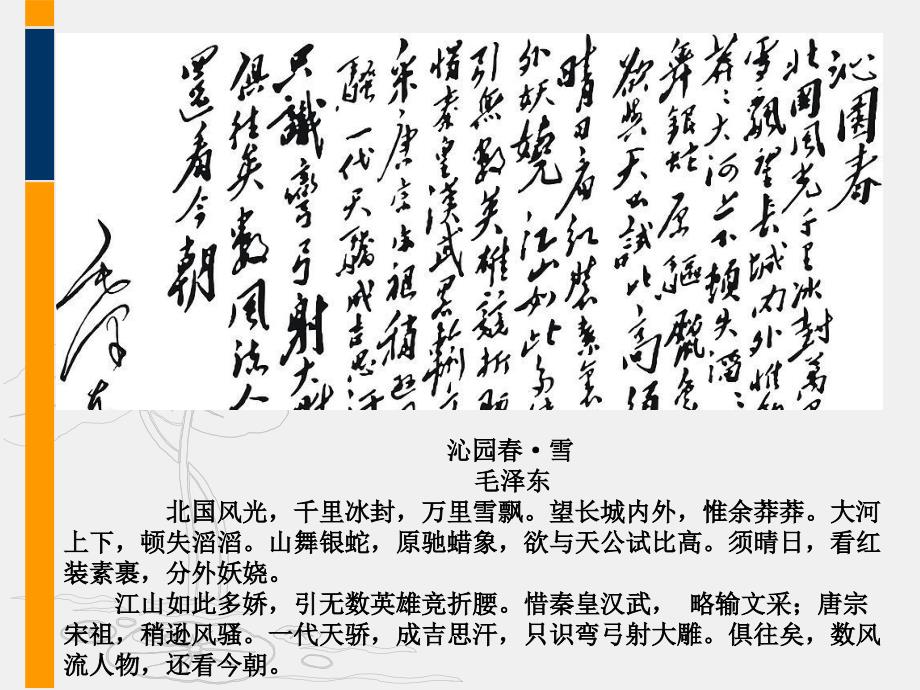 沁園春
北國風光千里冰封萬里
雪飄望長城內外惟餘
莽〻大河上下頓失滔〻
舞銀蛇原驅臘象
欲與天公試比高須
晴日看紅裝素裹
外妖嬈江山如此多嬌
引無數英雄競折腰
惜秦皇漢武略輸文
采唐宗宋祖稍遜風
騷一代天驕成吉思汗
只識彎弓射大雕
俱往矣數風流人
還看今朝
毛澤東
沁园春·雪
毛泽东
北国风光，千里冰封，万里雪飘。望长城内外，惟余莽莽。大河
上下，顿失滔滔。山舞银蛇，原驰蜡象，欲与天公试比高。须晴日，看红
装素裹，分外妖娆。
江山如此多娇，引无数英雄竞折腰。惜秦皇汉武， 略输文采；唐宗
宋祖，稍逊风骚。一代天骄，成吉思汗，只识弯弓射大雕。俱往矣，数风
流人物，还看今朝。